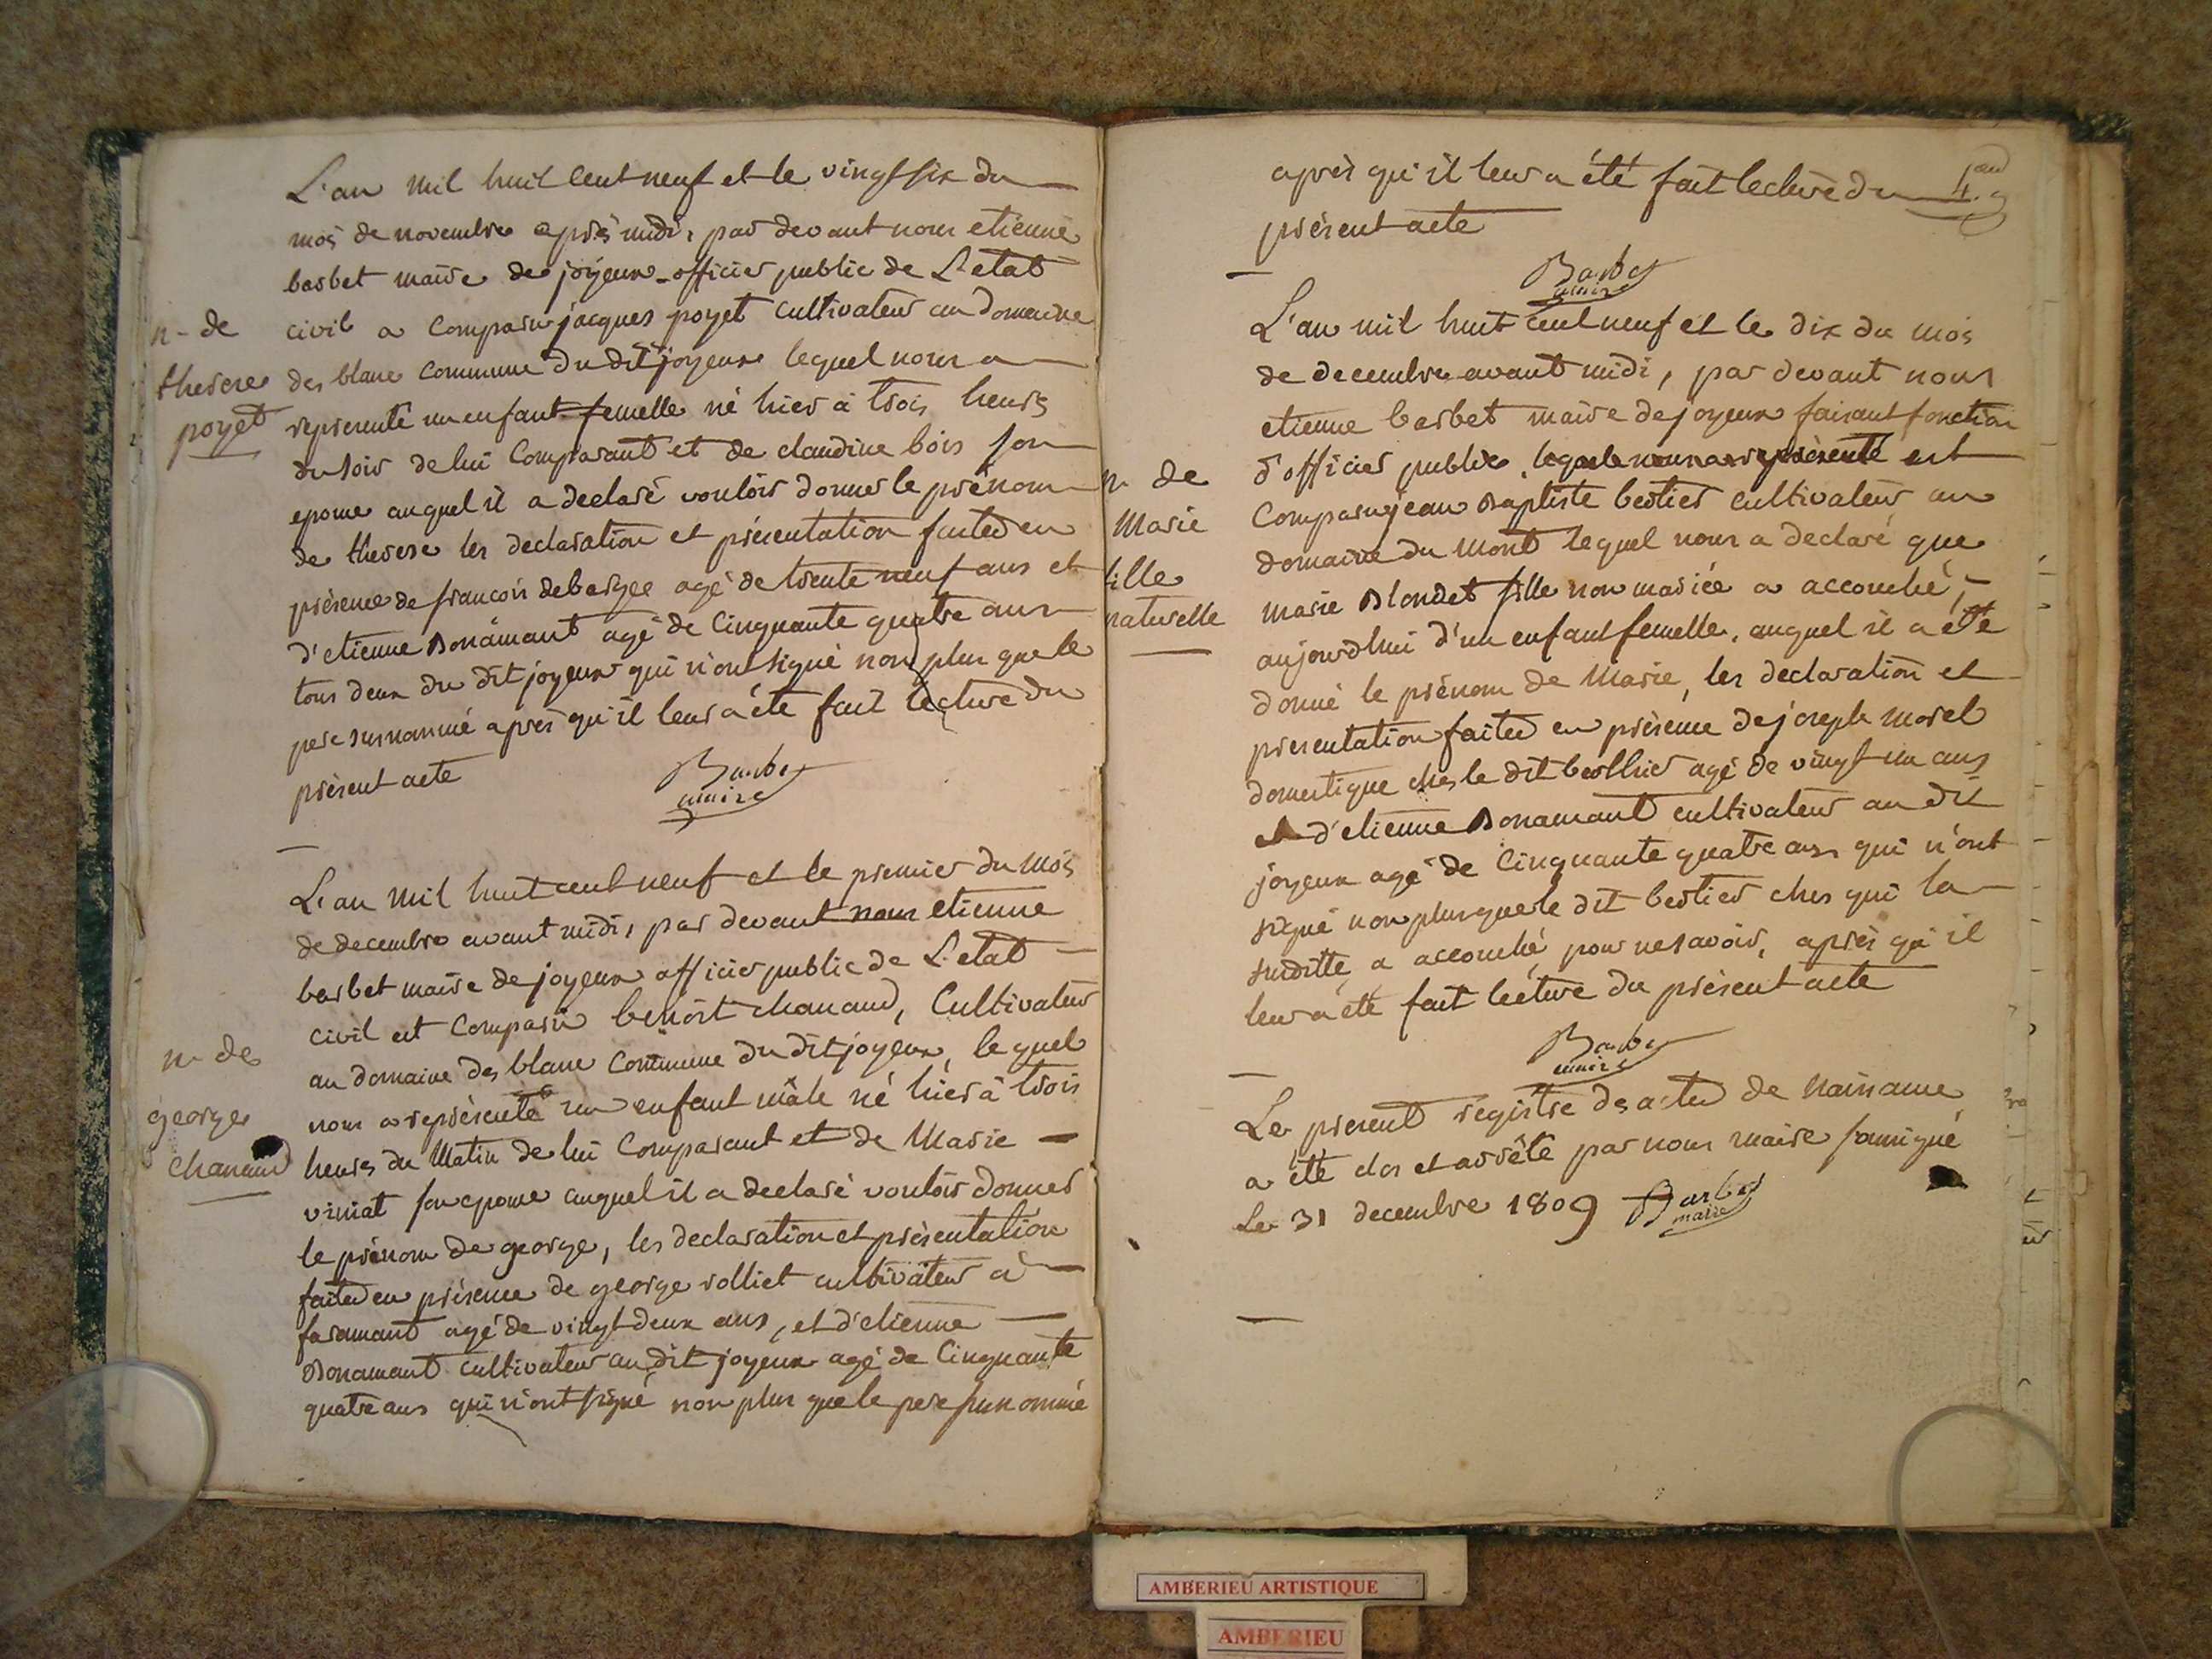 L'an mil huit cent neuf et le vingt six du
mois de novembre après midi, par devant nous etienne
barbet maire de joyeux officier public de L'etat
n- de
civil a comparu jacques poyet cultivateur au domaine
therese
des blanc commune du dit joyeux lequel nous a
poyet
représenté un enfant femelle né hier à trois heures
du soir de lui comparant et de claudine bois son
epouse auquel il a declaré vouloir donner le prénom
de therese les declaration et présentation faites en
présence de francois debarge agé de trente neuf ans et
d'etienne Bonamant agé de Cinquante quatre ans
tous deux du dit joyeux qui n'ont signé non plus que le
pere surnommé après qu'il leur a été fait lecture du
présent acte
Barbet
maire
L'an mil huit cent neuf et le premier du mois
de decembre avant midi, par devant nous etienne
barbet maire de joyeux officier public de L'etat
civil est comparu benoit chanaud, Cultivateur
n- de
au domaine des blanc commune du dit joyeux, lequel
george
nous a représenté un enfant mâle né hier à trois
chanaud
heures du Matin de lui Comparant et de Marie
viniat son epouse auquel il a declaré vouloir donner
le prénom de george, les declaration et présentation
faites en présence de george rolliet cultivateur à
faramant agé de vingt deux ans, et d'etienne
Bonamant cultivateur au dit joyeux agé de Cinquante
quatre ans qui n'ont signé non plus que le pere surnommé
après qu'il leur a été fait lecture du
présent acte
Barbet
maire
L'an mil huit cent neuf et le dix du mois
de decembre avant midi, par devant nous
etienne barbet maire de joyeux faisant fonction
d'officier public, lequel nous a représenté est
n- de
Comparu jean Baptiste bertier cultivateur au
Marie
domaine du Mont lequel nous a declaré que
fille
marie Blondet fille non mariée a accouché,
naturelle
aujourdhui d'un enfant femelle, auquel il a été
donné le prénom de Marie, les declaration et
presentation faites en présence de joseph morel
domestique ches le dit berthier agé de vingt un ans
et d'etienne Bonamant cultivateur au dit
joyeux agé de Cinquante quatre ans qui n'ont
signé non plus que le dit bertier ches qui la
suditte, a accouché pour ne savoir, après qu'il
leur a été fait lecture du présent acte
Barbet
maire
Le present registre des actes de Naissance
a été clos et arrêté par nous maire soussigné
Le 31 decembre 1809 Barbet
maire
AMBERIEU ARTISTIQUE
AMBERIEU